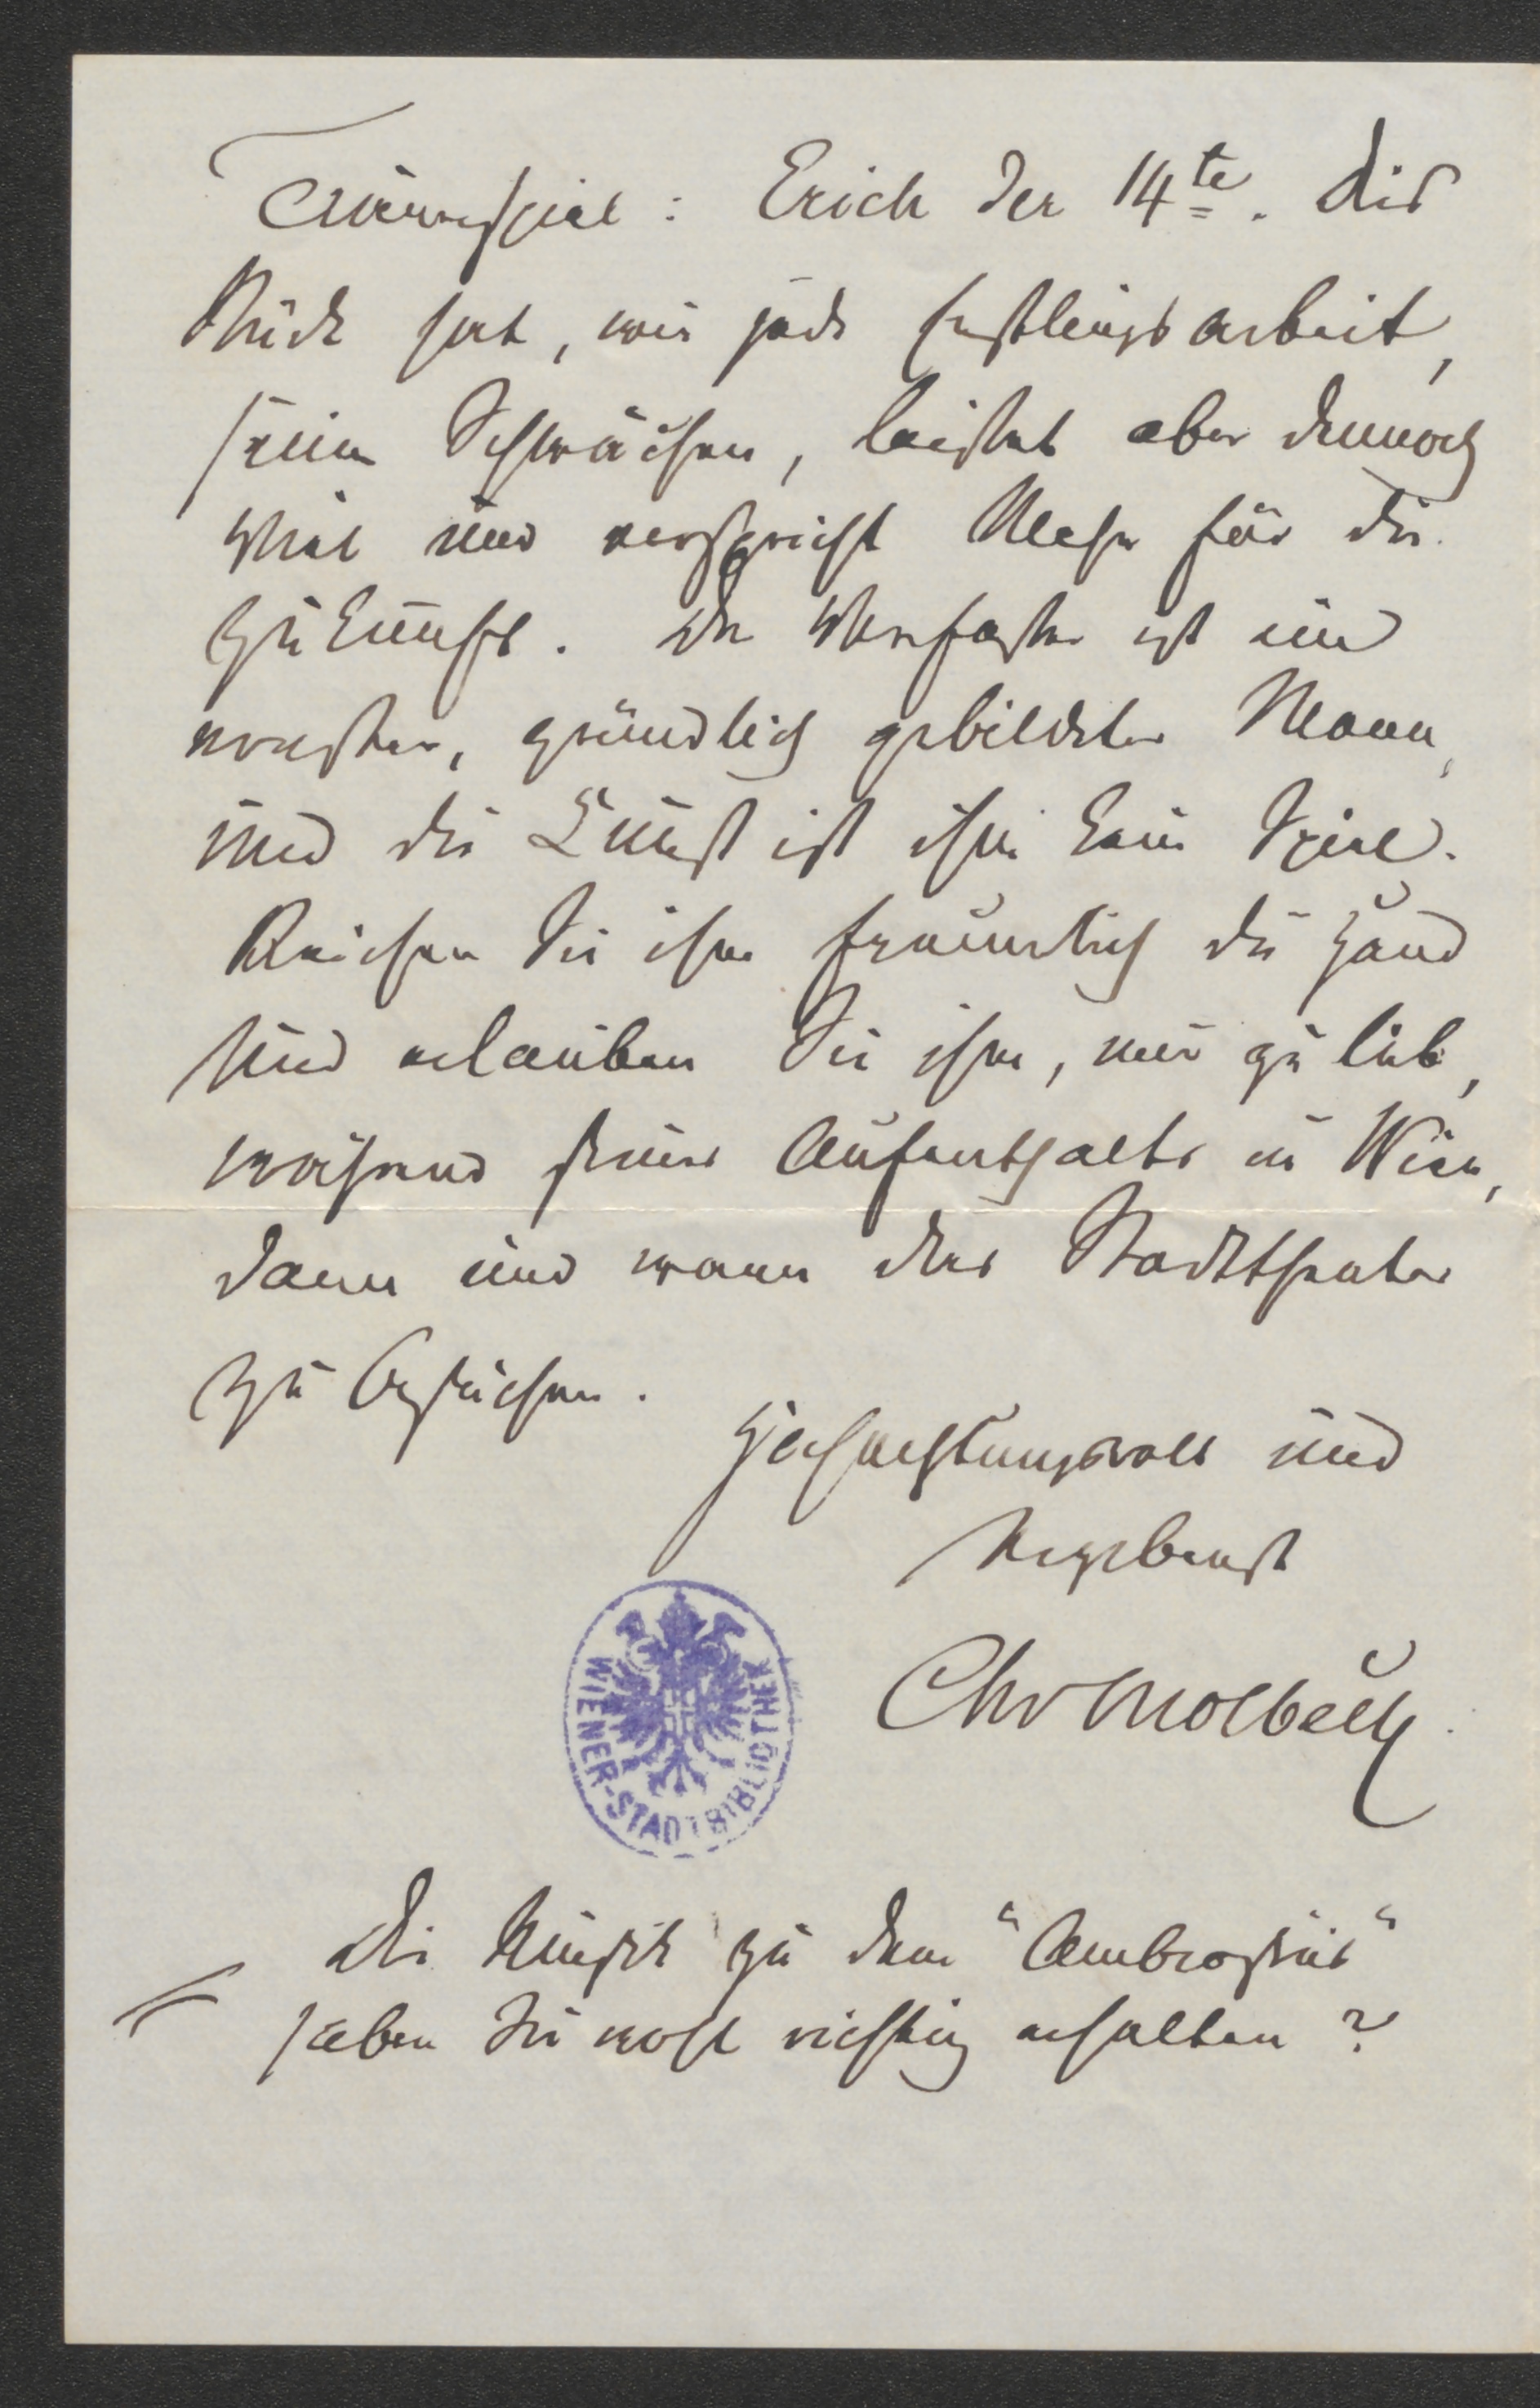 Trauerspiel: Erich der 14te. Das
Stück hat, wie jede Erstlingsarbeit,
seine Schwächen, leistet aber dennoch
Viel und verspricht Mehr für die
Zukunft. Der Verfasser ist ein
ernster, gründlich gebildeter Mann,
und die Kunst ist ihm kein Spiel.
Reichen Sie ihm freundlich die Hand
und erlauben Sie ihm, mir zu lieb,
während seines Aufenthalts in Wien,
dann und wann das Stadttheater
zu besuchen.
Hochachtungsvoll und
Ergebenst
Chr Molbech
WIENER-STADTBIBLIOTHEK
Die Musik zu dem "Ambrosius"
haben Sie wohl richtig erhalten?